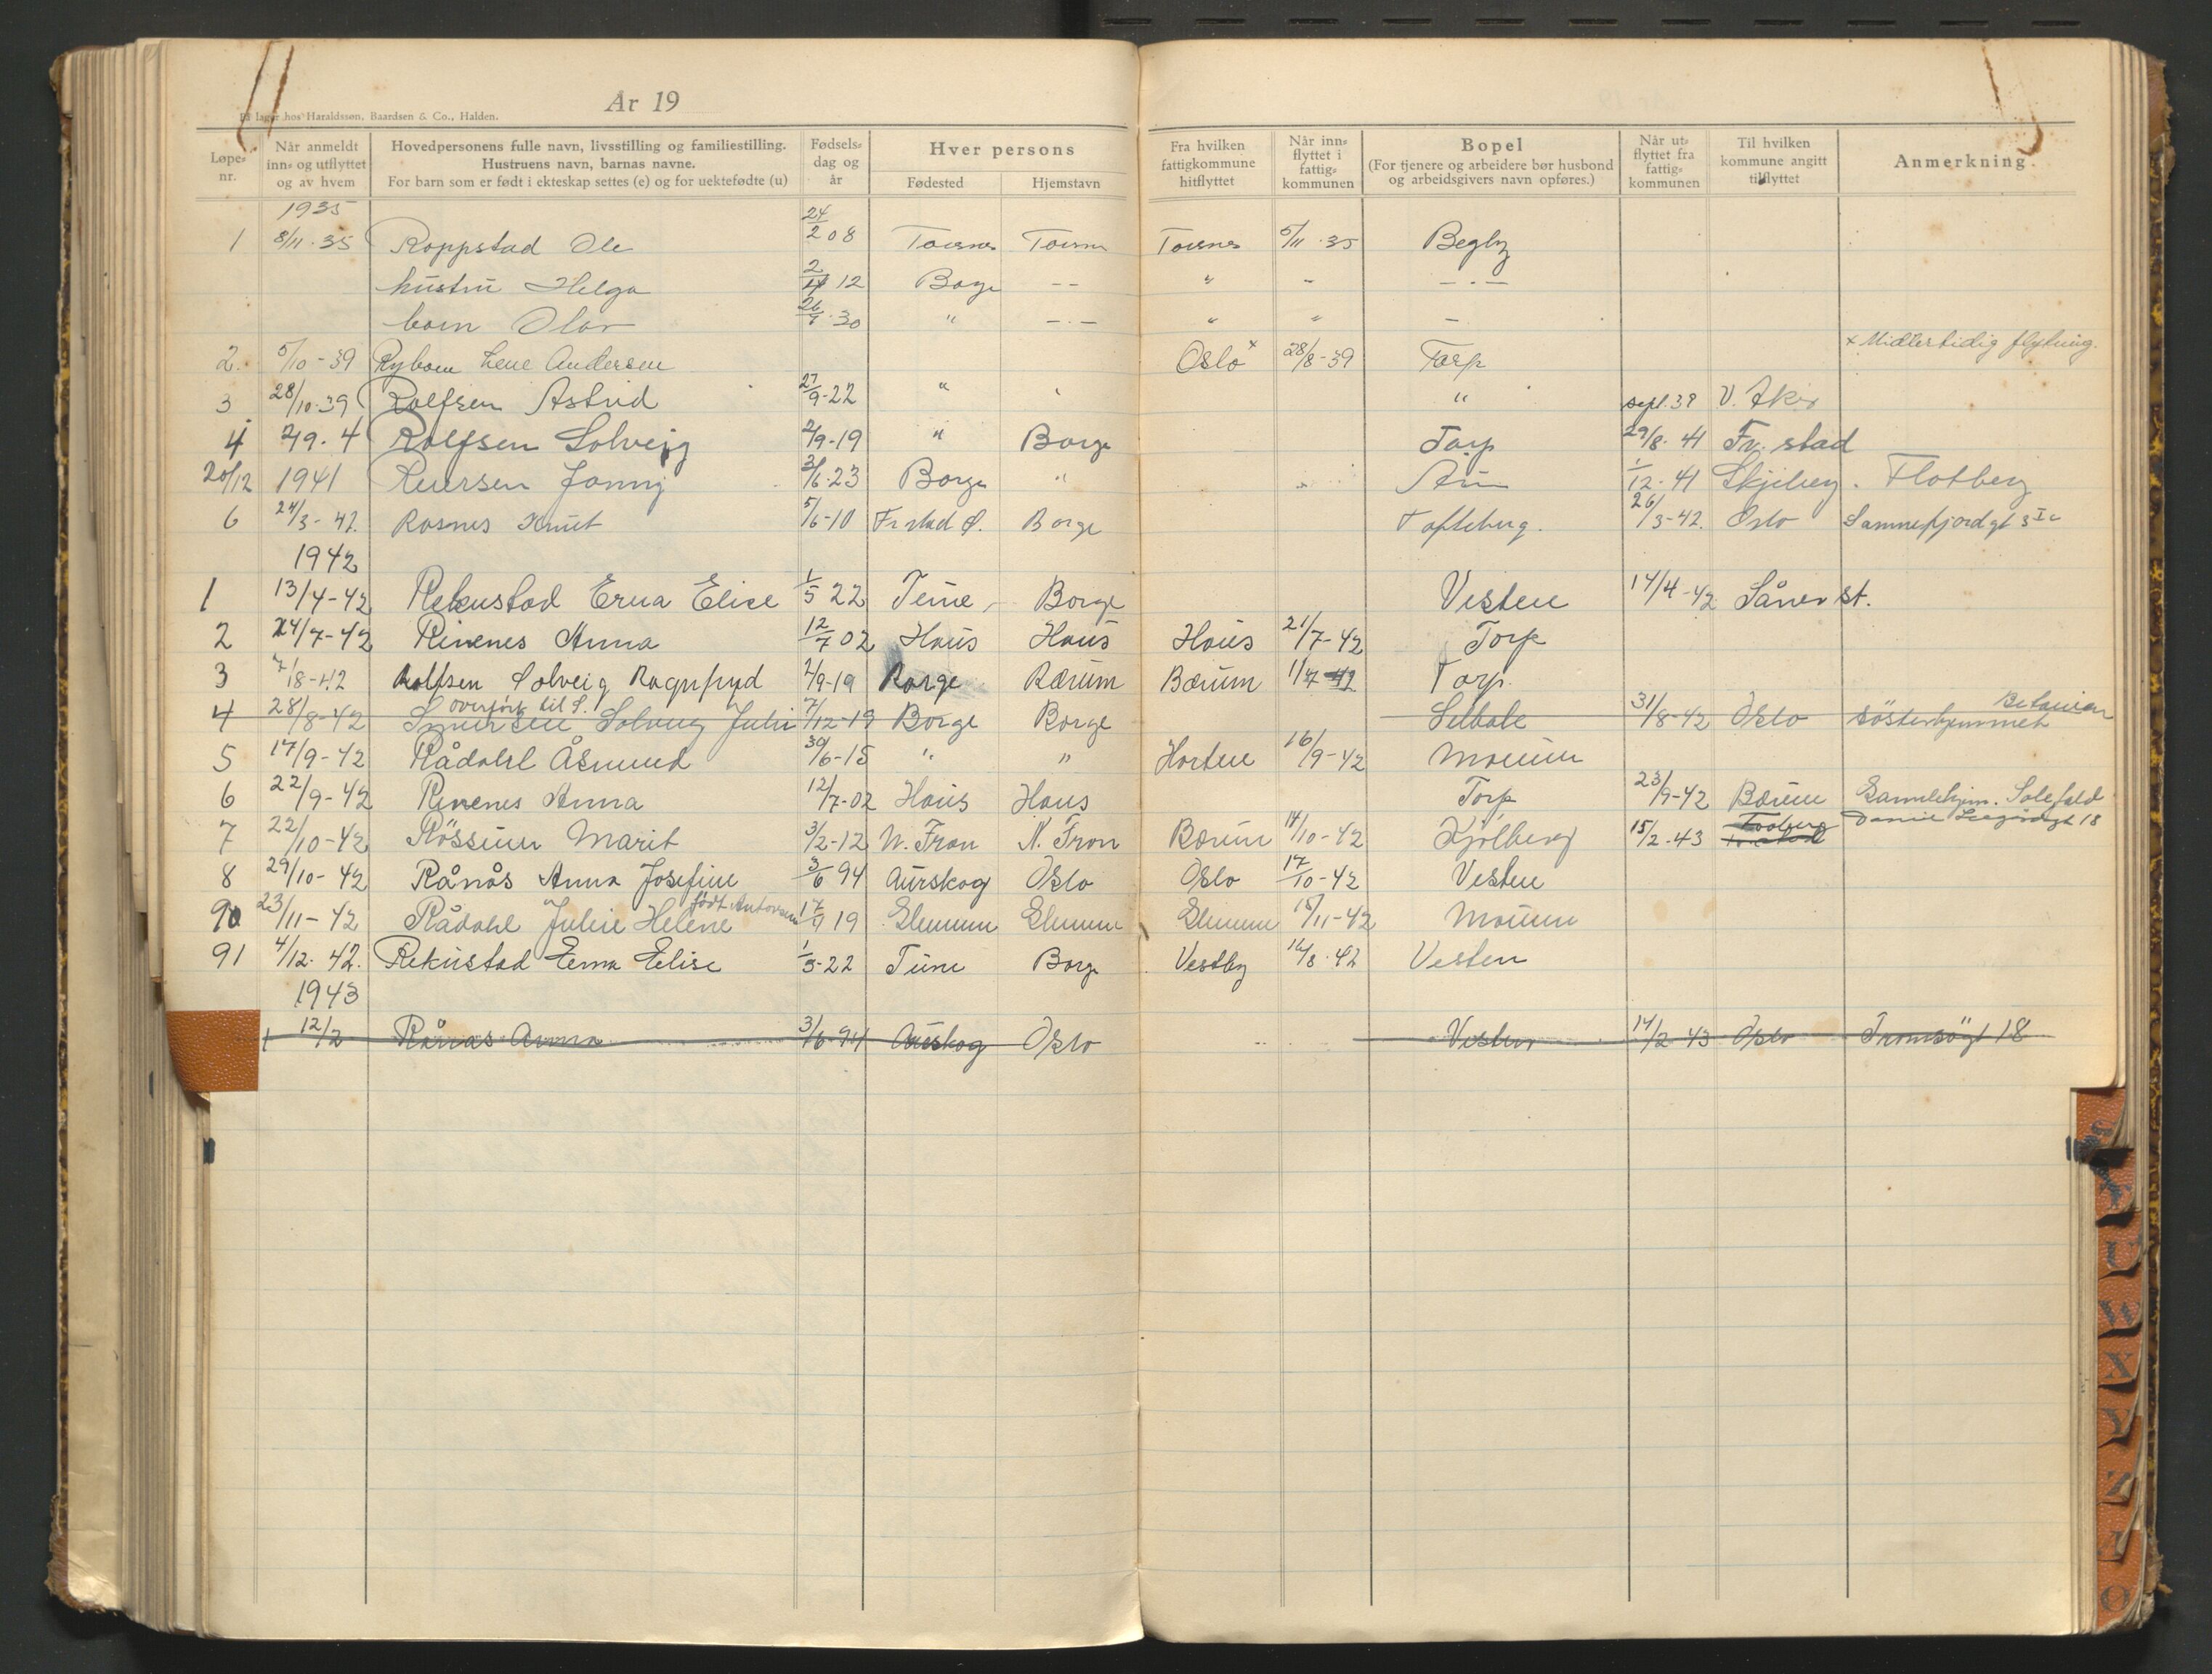 År 19
På lager hos Haraldssøn, Baardsen & Co., Halden.
Løpe-nr. Når anmeldt inn- og utflyttet og av hvem Hovedpersonens fulle navn, livsstilling og familiestilling. Hustruens navn, barnas navne. For barn som er født i ekteskap settes (e) og for uektefødte (u) Fødsels-dag og år Hver persons Fødested Hjemstavn Fra hvilken fattigkommune hitflyttet Når inn-flyttet i fattig-kommunen Bopel (For tjenere og arbeidere bør husbond og arbeidsgivers navn opføres.) Når ut-flyttet fra fattig-kommunen Til hvilken kommune angitt tilflyttet Anmerkning
1935
1 8/11.35 Roppstad Ole 24/2 08 5/11.35 Begby
hustru Helga 12 Borge -- " " -.-
barn Olav 26/7.30 " -.- " " -
2. 5/10-39 Lene Andersen Oslo x 28/8-39 Torp x Midlertidig flytning.
3 28/10.39 Rolfsen Astrid 27/9-22 " " sept.39 V. Aker
4 Rolfsen Solveig 2/9-19 " Borge Torp 29/8-41 Fr. stad
20/12 1941 Iversen Jonny 3/6.23 Borge " 1/12-41 Skjeberg. Flatberg
6 24/3-42 Rosnes Knut 5/6-10 Fr stad Borge Tofteberg. 26/3-42. Oslo
1942
1 13/4-42 Rekustad Erna Elise 1/5 22 Tune, Borge Vesten 14/4-42 Såner st.
2 24/7-42 Rinenes Anna 12/7 02 Haus Haus Haus 21/7-42 Torp
3 7/8-42 Rolfsen Solveig Ragnfryd 2/9-19 Borge Bærum Bærum Torp.
overført til S.
4 28/8-42 Solveig 7/12-19 Borge Borge Selbak 31/8-42 Oslo Betanien Søsterhjemmet
5 17/9-42 Rådahl Åsmund 30/6-15 " " Horten 16/9-42 Moum
6 22/9-42 Rinenes Anna 12/7-02 Haus Haus Torp 23/9-42 Bærum Gamlehjem. Solefald
7 22/10-42 Røssum Marit 3/2-12 N. Fron N. Fron Bærum 14/10-42 Kjølberg 15/2-43
8 29/10-42 Rånås Anna Josefine 3/6 94 Aurskog Oslo Oslo 17/10-42 Vesten
født
90 23/11-42 Rådahl Julie Helene 19 Glemmen Glemmen Glemmen 15/11-42 Moum
91 4/12.42. Rekustad Erna Elise 1/5-22 Tune Borge Vestby 16/8.42 Vesten
1943
1 12/2 Rånås Anna 3/6-94 Aurskog Oslo Vesten 14/2-43 Oslo Tromsøgt 18
U
W
X
Y
Z
Ø